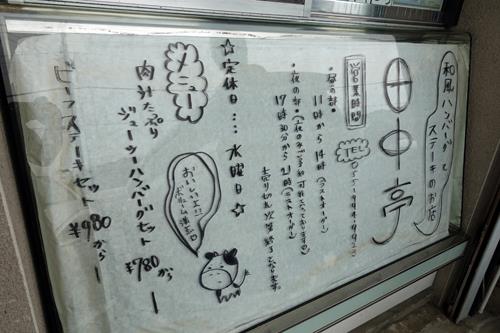 和風ハンバーグと
ステーキのお店
田中亭
営業時間
TEL
・昼の部・
11時から14時(ラストオーダー)
・夜の部・
17時30分から21時(ラストオーダー)
売り切れ次第終了となります。
☆定休日…水曜日☆
メニュー
おいしいよ!!
ボリューム満点
肉汁たっぷり
ジューシーハンバーグセット
¥780から
ビーフステーキセット
¥980から